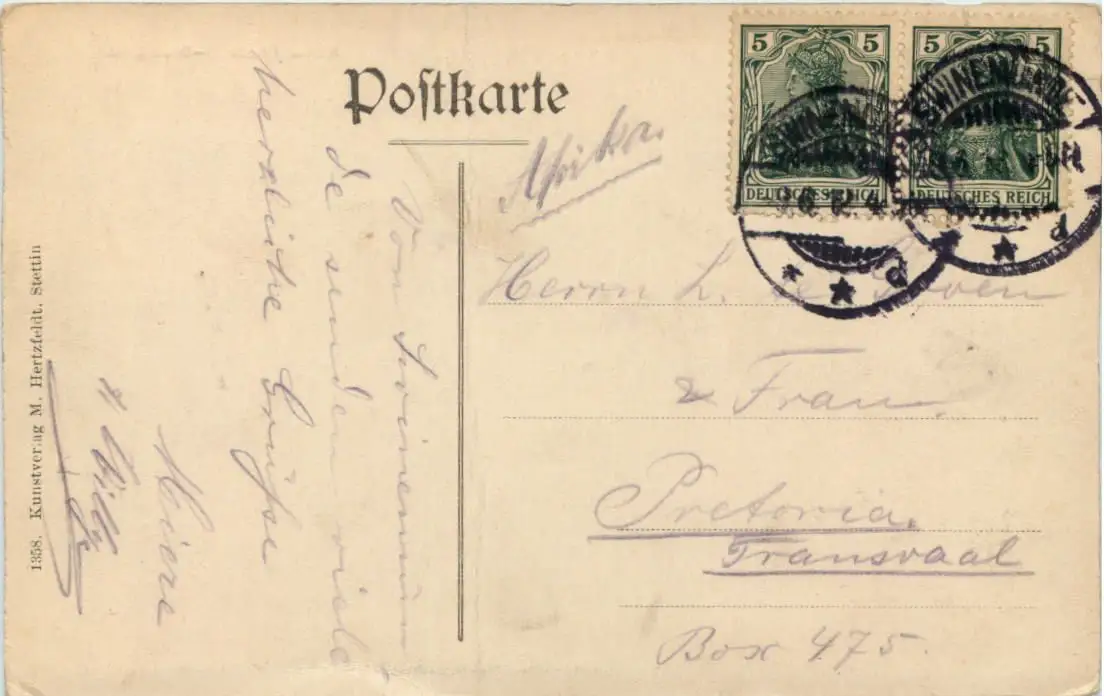 Postkarte
5 5
DEUTSCHES REICH
5 5
DEUTSCHES REICH
SWINEMÜNDE
Afrika.
Herrn L. de
& Frau.
Pretoria.
Transvaal
Box 475.
Von Swinemün
de senden viele
herzliche Grüße
& Willy
1358. Kunstverlag M. Hertzfeldt, Stettin